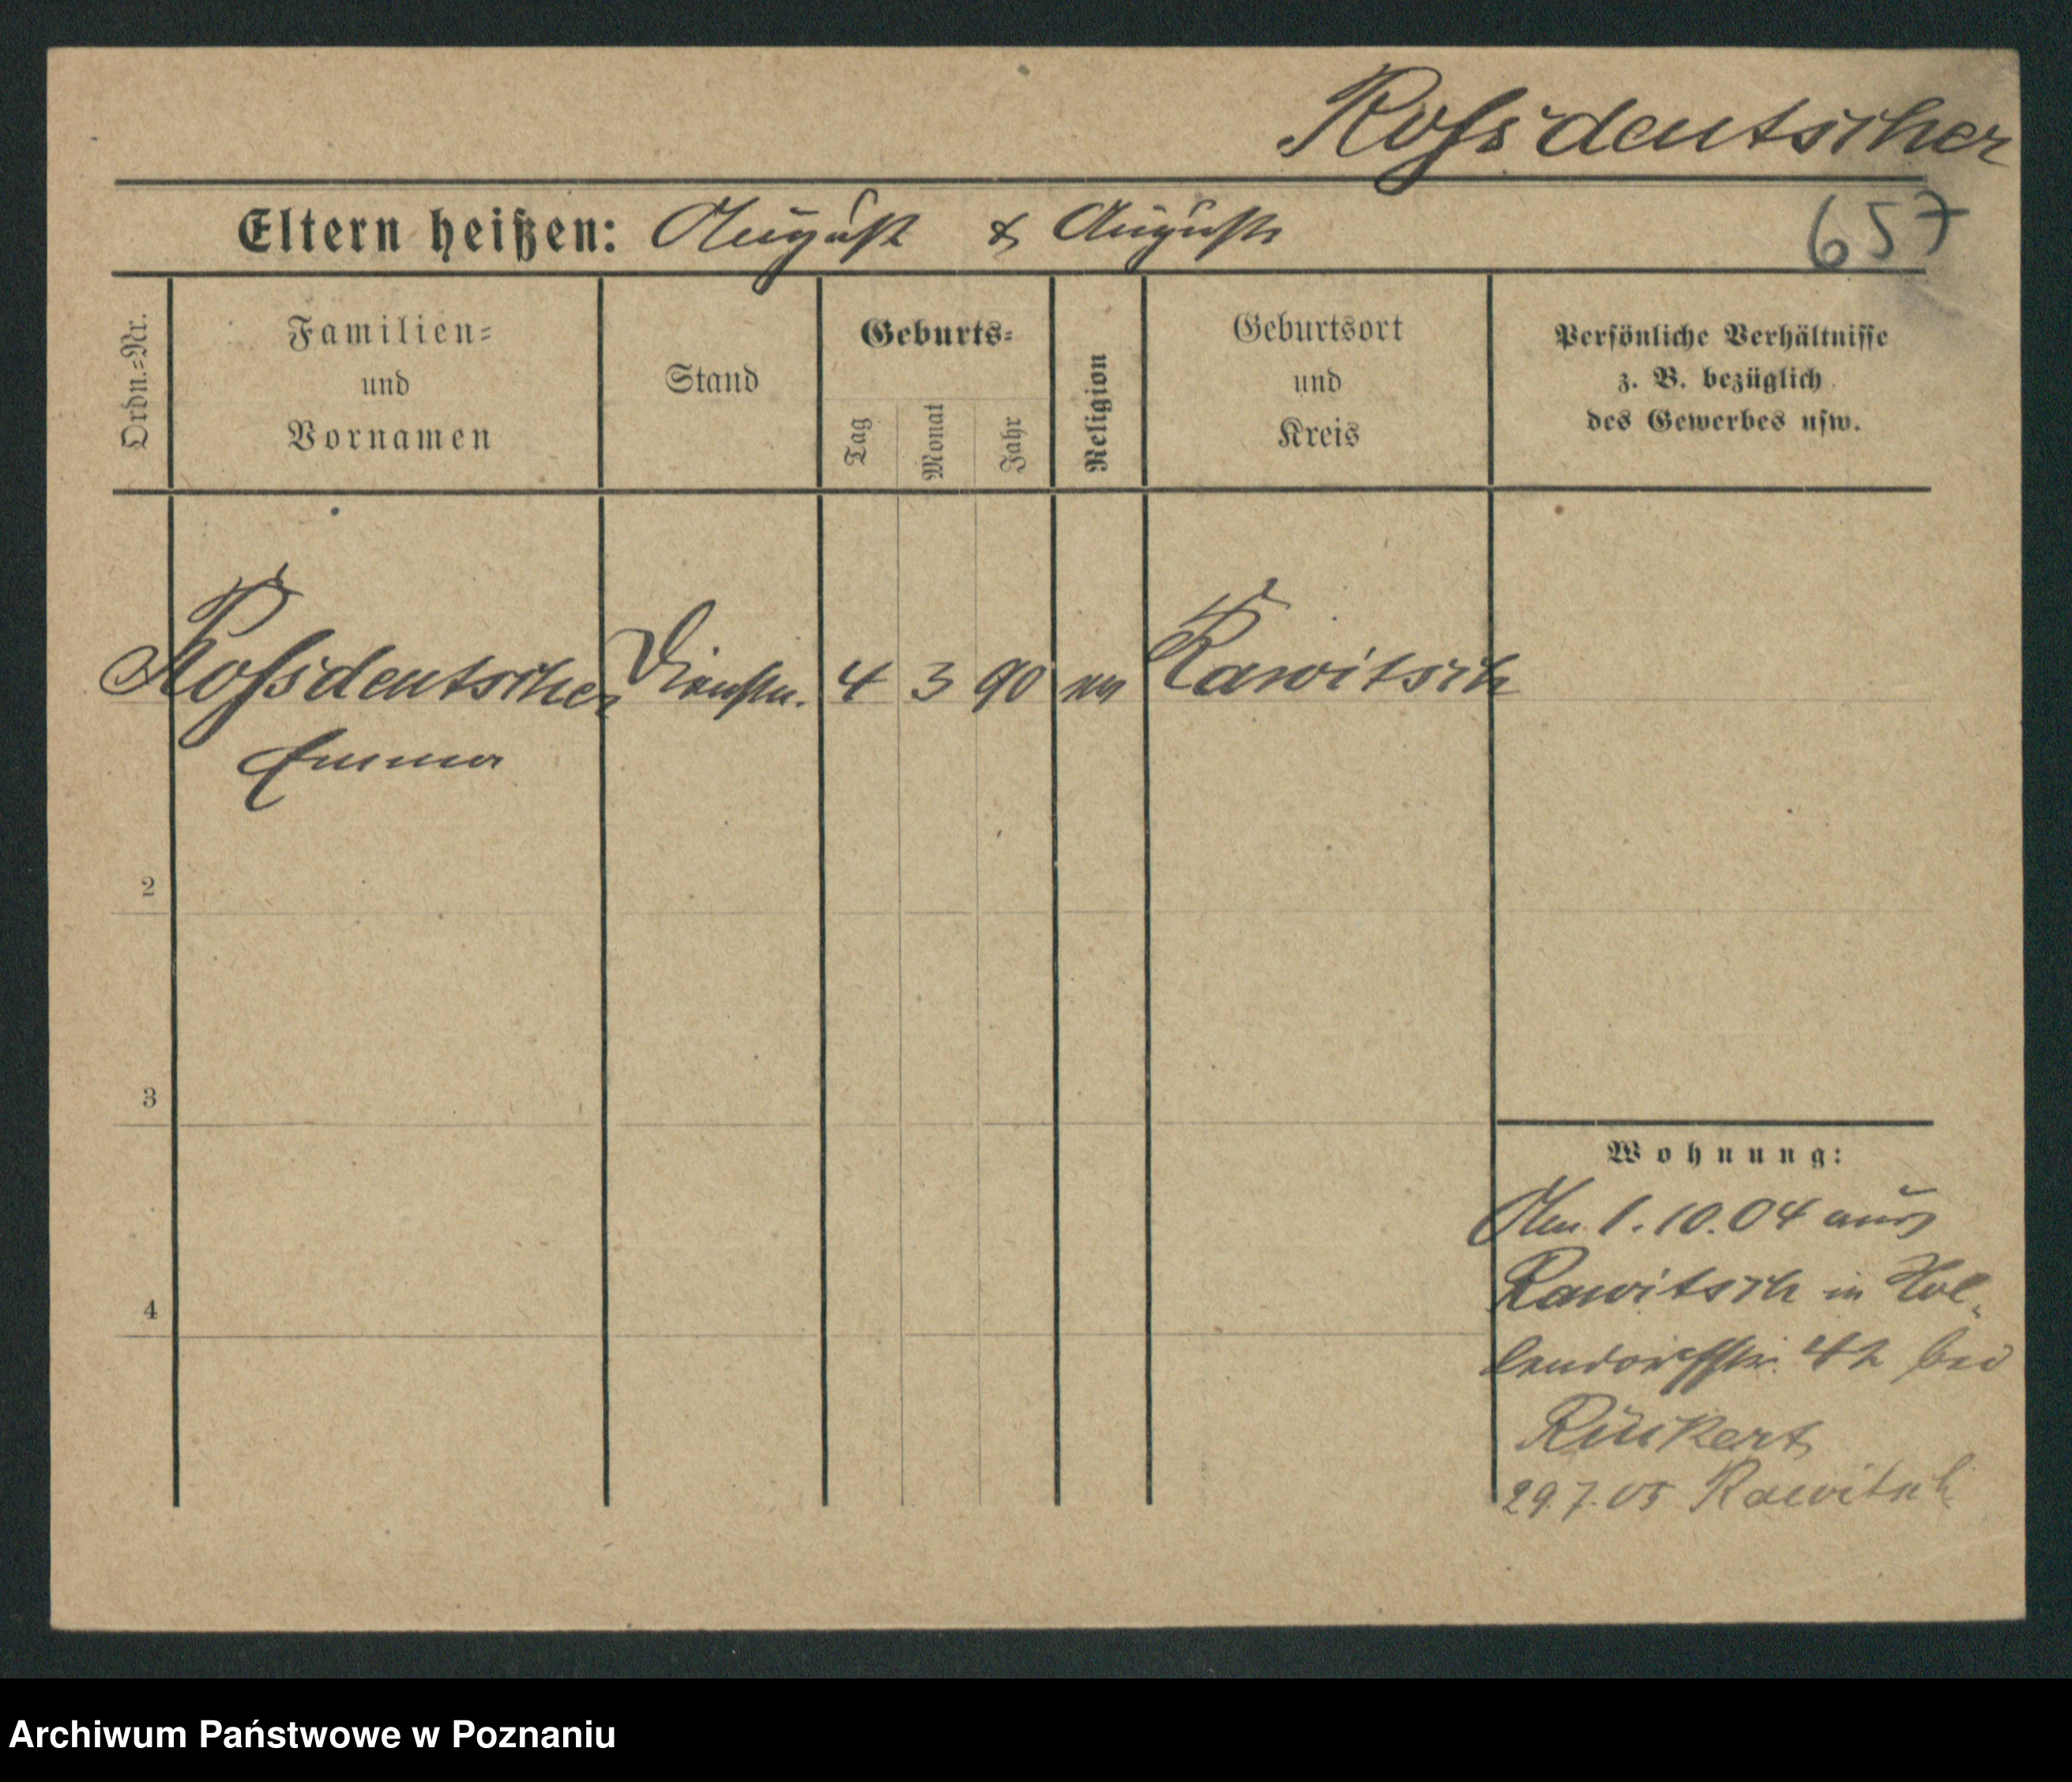 Roßdeutscher
657
Eltern heißen: August & Auguste
Ordn.=Nr.
Familien=
und
Vornamen
Stand
Geburts=
Tag
Monat
Jahr
Religion
Geburtsort
und
Kreis
Persönliche Verhältnisse
z. B. bezüglich
des Gewerbes usw.
Roßdeutscher Dienstm. 4 3 90 ev Rawitsch
Emma
2
3
4
Wohnung:
Am 1.10.04 aus
Rawitsch in Hol-
lendorffstr. 42 bei
Rückert
29.7.05 Rawitsch
Archiwum Państwowe w Poznaniu